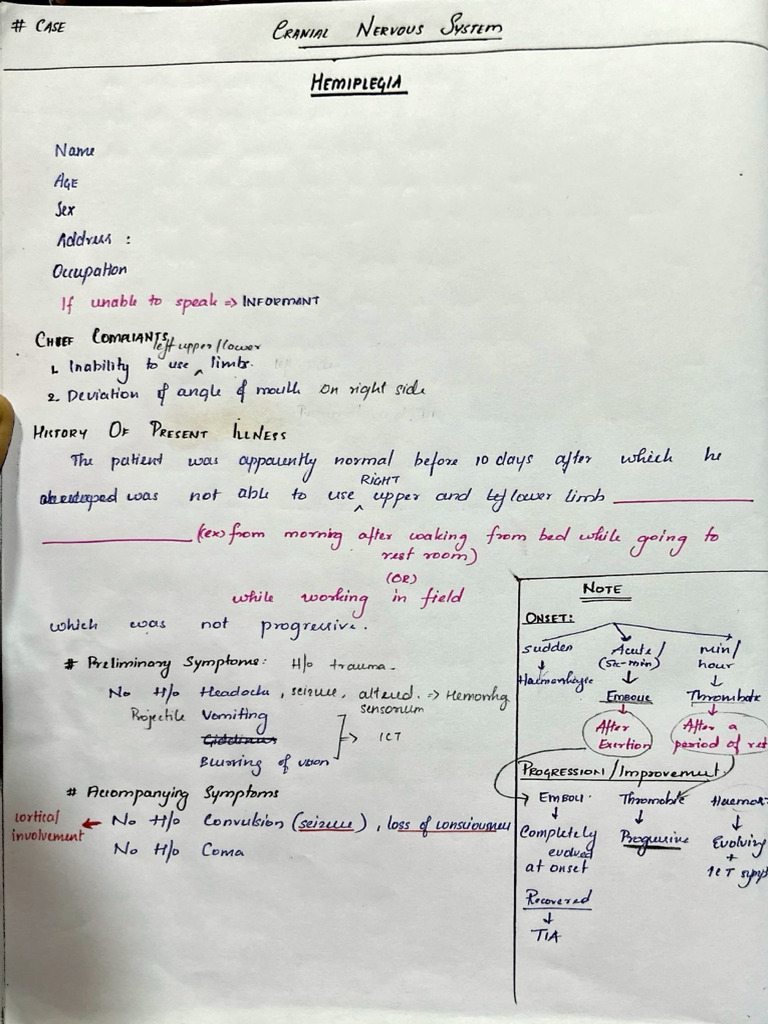 # CASE
CRANIAL NERVOUS SYSTEM
HEMIPLEGIA
Name
AGE
Sex
Address :
Occupation
If unable to speak => INFORMANT
CHIEF COMPLIANTS
left upper/lower
1. Inability to use ^ limbs.
2. Deviation of angle of mouth on right side
HISTORY OF PRESENT ILLNESS
The patient was apparently normal before 10 days after which he
RIGHT
was not able to use ^ upper and lower limb
(ex) from morning after waking from bed while going to
rest room)
(OR)
while working in field
which was not progressive.
# Preliminary Symptoms: H/o trauma.
No H/o Headache, seizure, altered => Hemorrhg
sensorium
Projectile Vomiting
Giddiness → ICT
Blurring of vision
# Accompanying Symptoms
cortical involvement ← No H/o Convulsion (seizure), loss of consciousness
No H/o Coma
NOTE
ONSET:
sudden Acute/ min/
(sec-min) hour
↓ ↓ ↓
Haemorrhage Embolic Thrombotic
↓ ↓
After After a
Exertion period of rest
PROGRESSION/Improvement.
→ EMBOLI. Thrombotic Haemorr
↓ ↓ ↓
Completely Progressive Evolving
evolved +
at onset ICT sympt
Recovered
↓
TIA